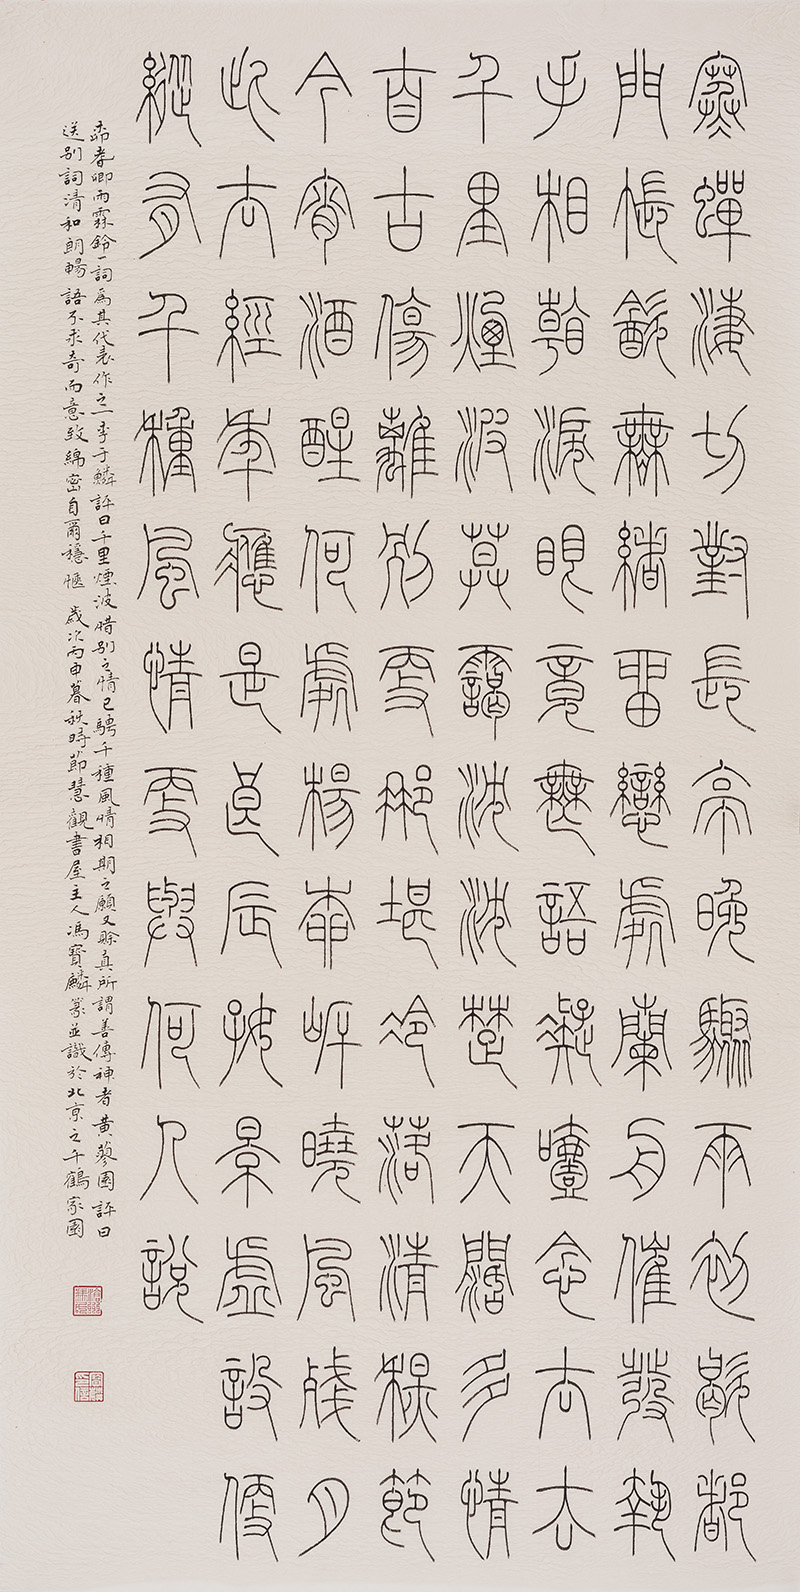 寒蟬淒切對長亭晚驟雨初歇都
門帳飲無緒留戀處蘭舟催發執
手相看淚眼竟無語凝噎念去去
千里煙波莫靄沈沈楚天闊多情
自古傷離別更那堪冷落清秋節
今宵酒醒何處楊柳岸曉風殘月
此去經年應是良辰好景虛設便
縱有千種風情更與何人說
柳耆卿雨霖鈴一詞為其代表作之一李于鱗評曰千里煙波惜別之情已騁千種風情相期之願又賒真所謂善傳神者黃蓼園評曰
送別詞清和朗暢語不求奇而意致綿密自爾穩愜歲次丙申暮秋時節慧觀書屋主人馮寶麟篆並識於北京之千鶴家園